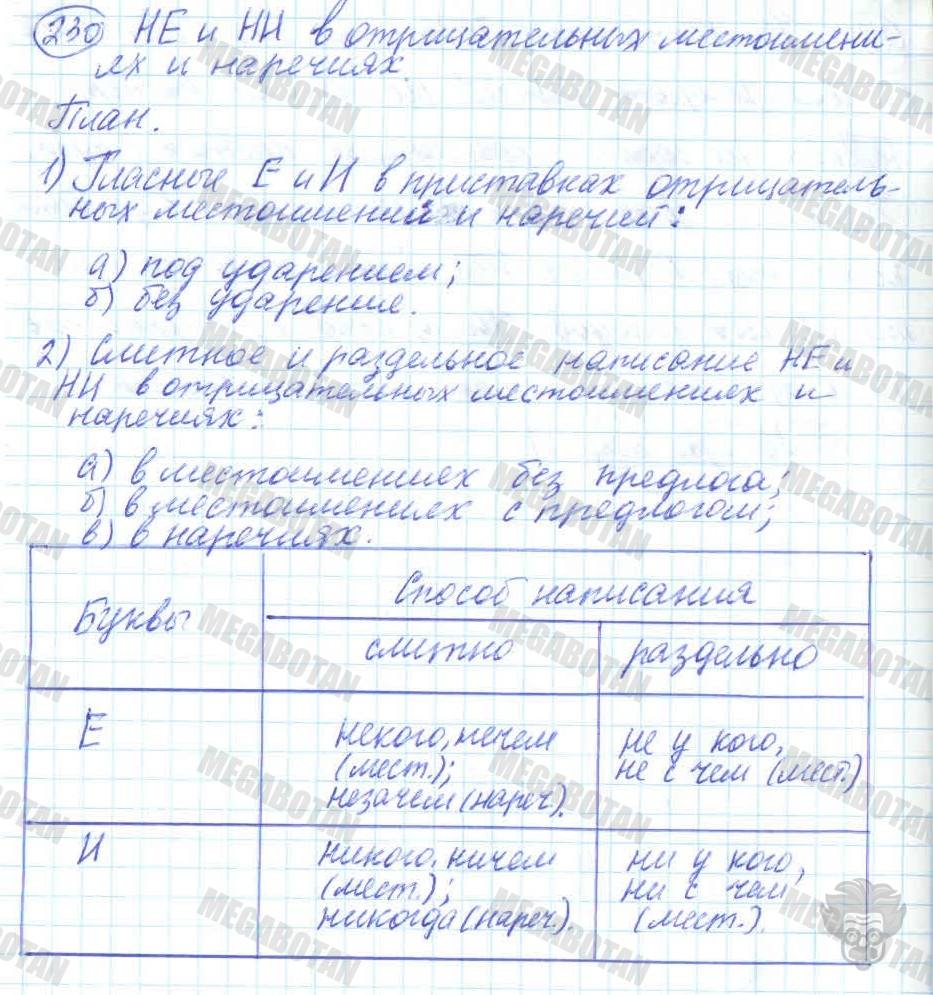 230 НЕ и НИ в отрицательных местоимени-
ях и наречиях.
План.
1) Гласные Е и И в приставках отрицатель-
ных местоимений и наречий:
а) под ударением;
б) без ударения.
2) Слитное и раздельное написание НЕ и
НИ в отрицательных местоимениях и
наречиях:
а) в местоимениях без предлога;
б) в местоимениях с предлогом;
в) в наречиях.
Буквы
Способ написания
слитно
раздельно
Е
некого, нечем
(мест.);
незачем (нареч).
не у кого,
не с чем (мест.)
И
никого, ничем
(мест.);
никогда (нареч.).
ни у кого,
ни с чем
(мест.).
MEGABOTAN